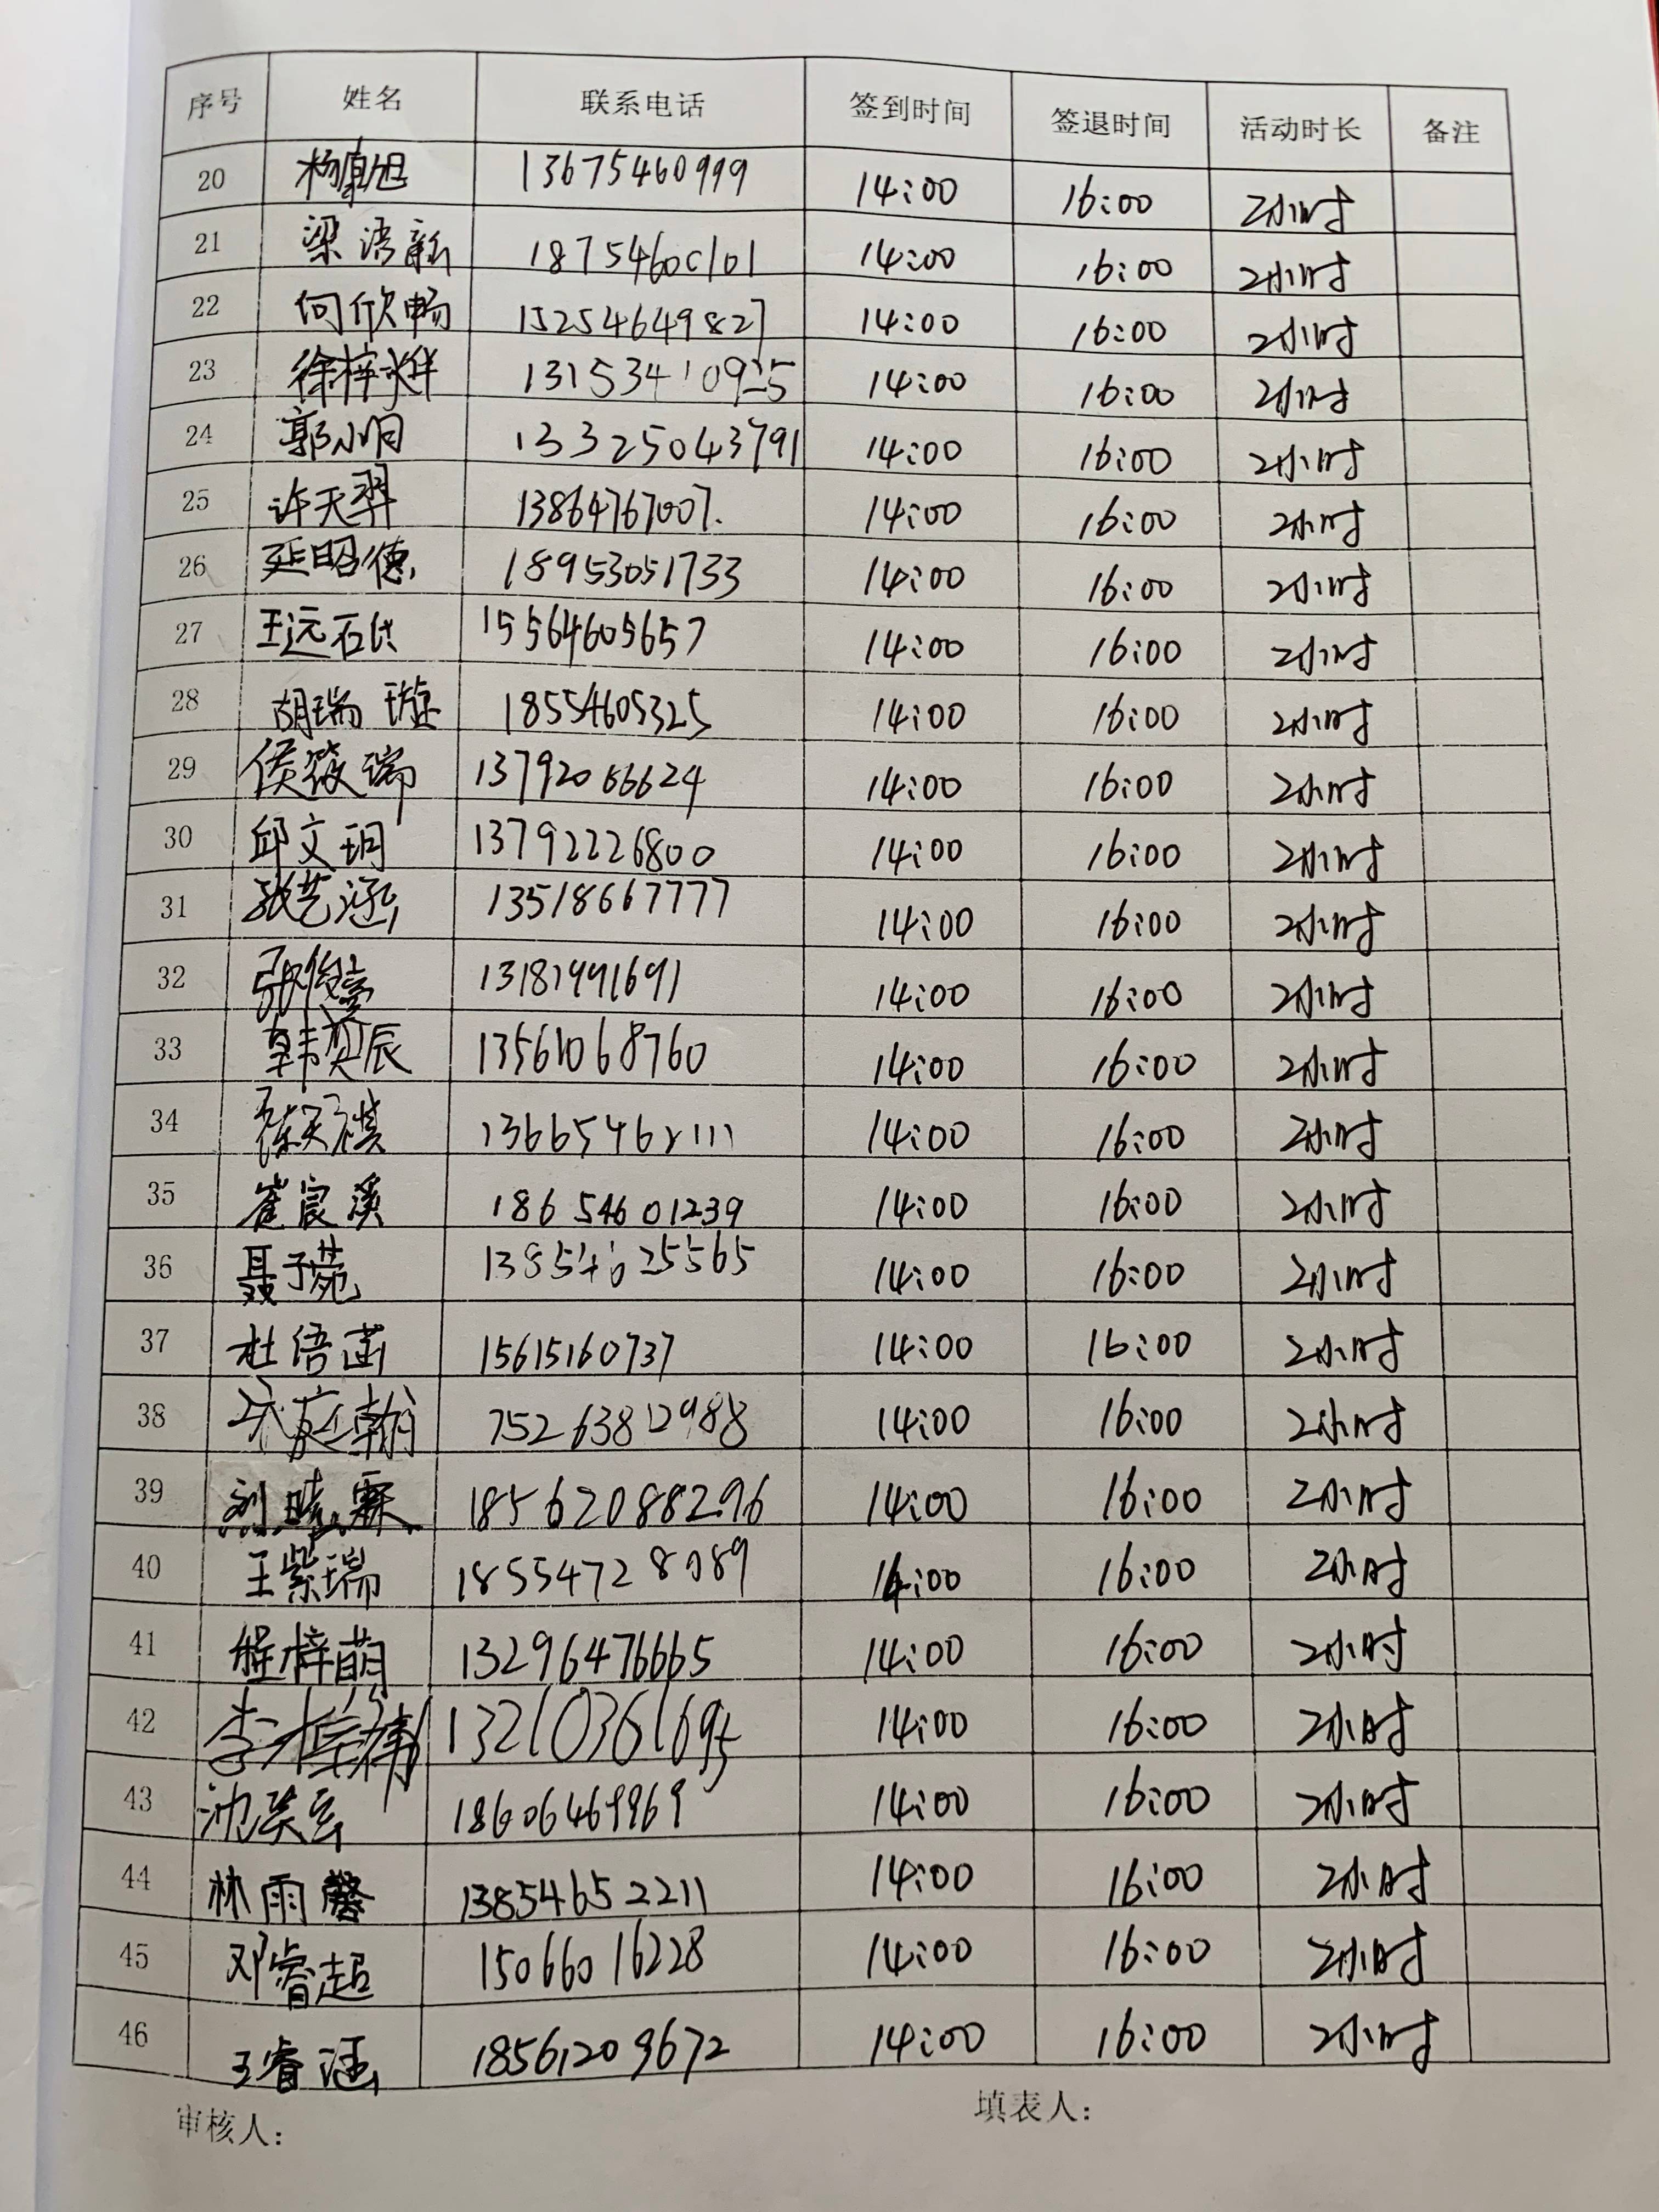 序号 姓名 联系电话 签到时间 签退时间 活动时长 备注
20 13675460999 14:00 16:00 2小时
21 梁语新 18754600101 14:00 16:00 2小时
22 何欣畅 15254649827 14:00 16:00 2小时
23 徐梓烊 14:00 16:00 2小时
24 郭小明 13325043791 14:00 16:00 2小时
25 许天羿 13864767007. 14:00 16:00 2小时
26 延昭德 18953051733 14:00 16:00 2小时
27 王远 15564605657 14:00 16:00 2小时
28 胡瑞璇 18554605325 14:00 16:00 2小时
29 侯筱瑞 13792066624 14:00 16:00 2小时
30 邱文玥 13792226800 14:00 16:00 2小时
31 张艺涵 13518667777 14:00 16:00 2小时
32 13181991691 14:00 16:00 2小时
33 韩奕辰 13561068760 14:00 16:00 2小时
34 陈天祺 14:00 16:00 2小时
35 崔宸溪 18654601239 14:00 16:00 2小时
36 聂子菀 13854625565 14:00 16:00 2小时
37 杜语菡 15615160737 14:00 16:00 2小时
38 宋庭翰 14:00 16:00 2小时
39 刘晓霖 18562088296 14:00 16:00 2小时
40 王紫瑞 18554728089 14:00 16:00 2小时
41 程梓萌 13296476665 14:00 16:00 2小时
42 14:00 16:00 2小时
43 18606469969 14:00 16:00 2小时
44 林雨馨 13854652211 14:00 16:00 2小时
45 邓睿超 15066016228 14:00 16:00 2小时
46 王睿涵 18561209672 14:00 16:00 2小时
审核人： 填表人：